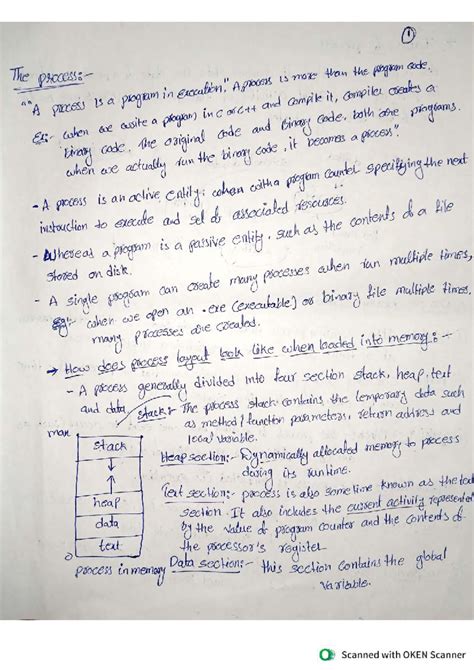 1
The process:-
""A process is a program in execution". A process is more than the program code.
Eg:- when we write a program in c or c++ and compile it, compiler creates a
binary code. The original code and Binary code, both are programs.
when we actually run the binary code, it becomes a process".
- A process is an active entity. with a program counter specifying the next
instruction to execute and set of associated resources.
- Whereas a program is a passive entity, such as the contents of a file
stored on disk.
- A single program can create many processes when run multiple times,
Eg:- when we open an .exe (executable) or binary file multiple times.
many processes are created.
→ How does process layout look like when loaded into memory:-
- A process generally divided into four section stack, heap, text
and data.
stack:- The process stack contains the temporary data such
as method / function parameters, return address and
local variable.
Heap section:- Dynamically allocated memory to process
during its runtime.
Text section:- process is also sometime known as the text
section. It also includes the current activity represented
by the value of program counter and the contents of
the processor's register
Data section:- this section contains the global
variable.
max
stack
heap
data
text
0
process in memory
Scanned with OKEN Scanner